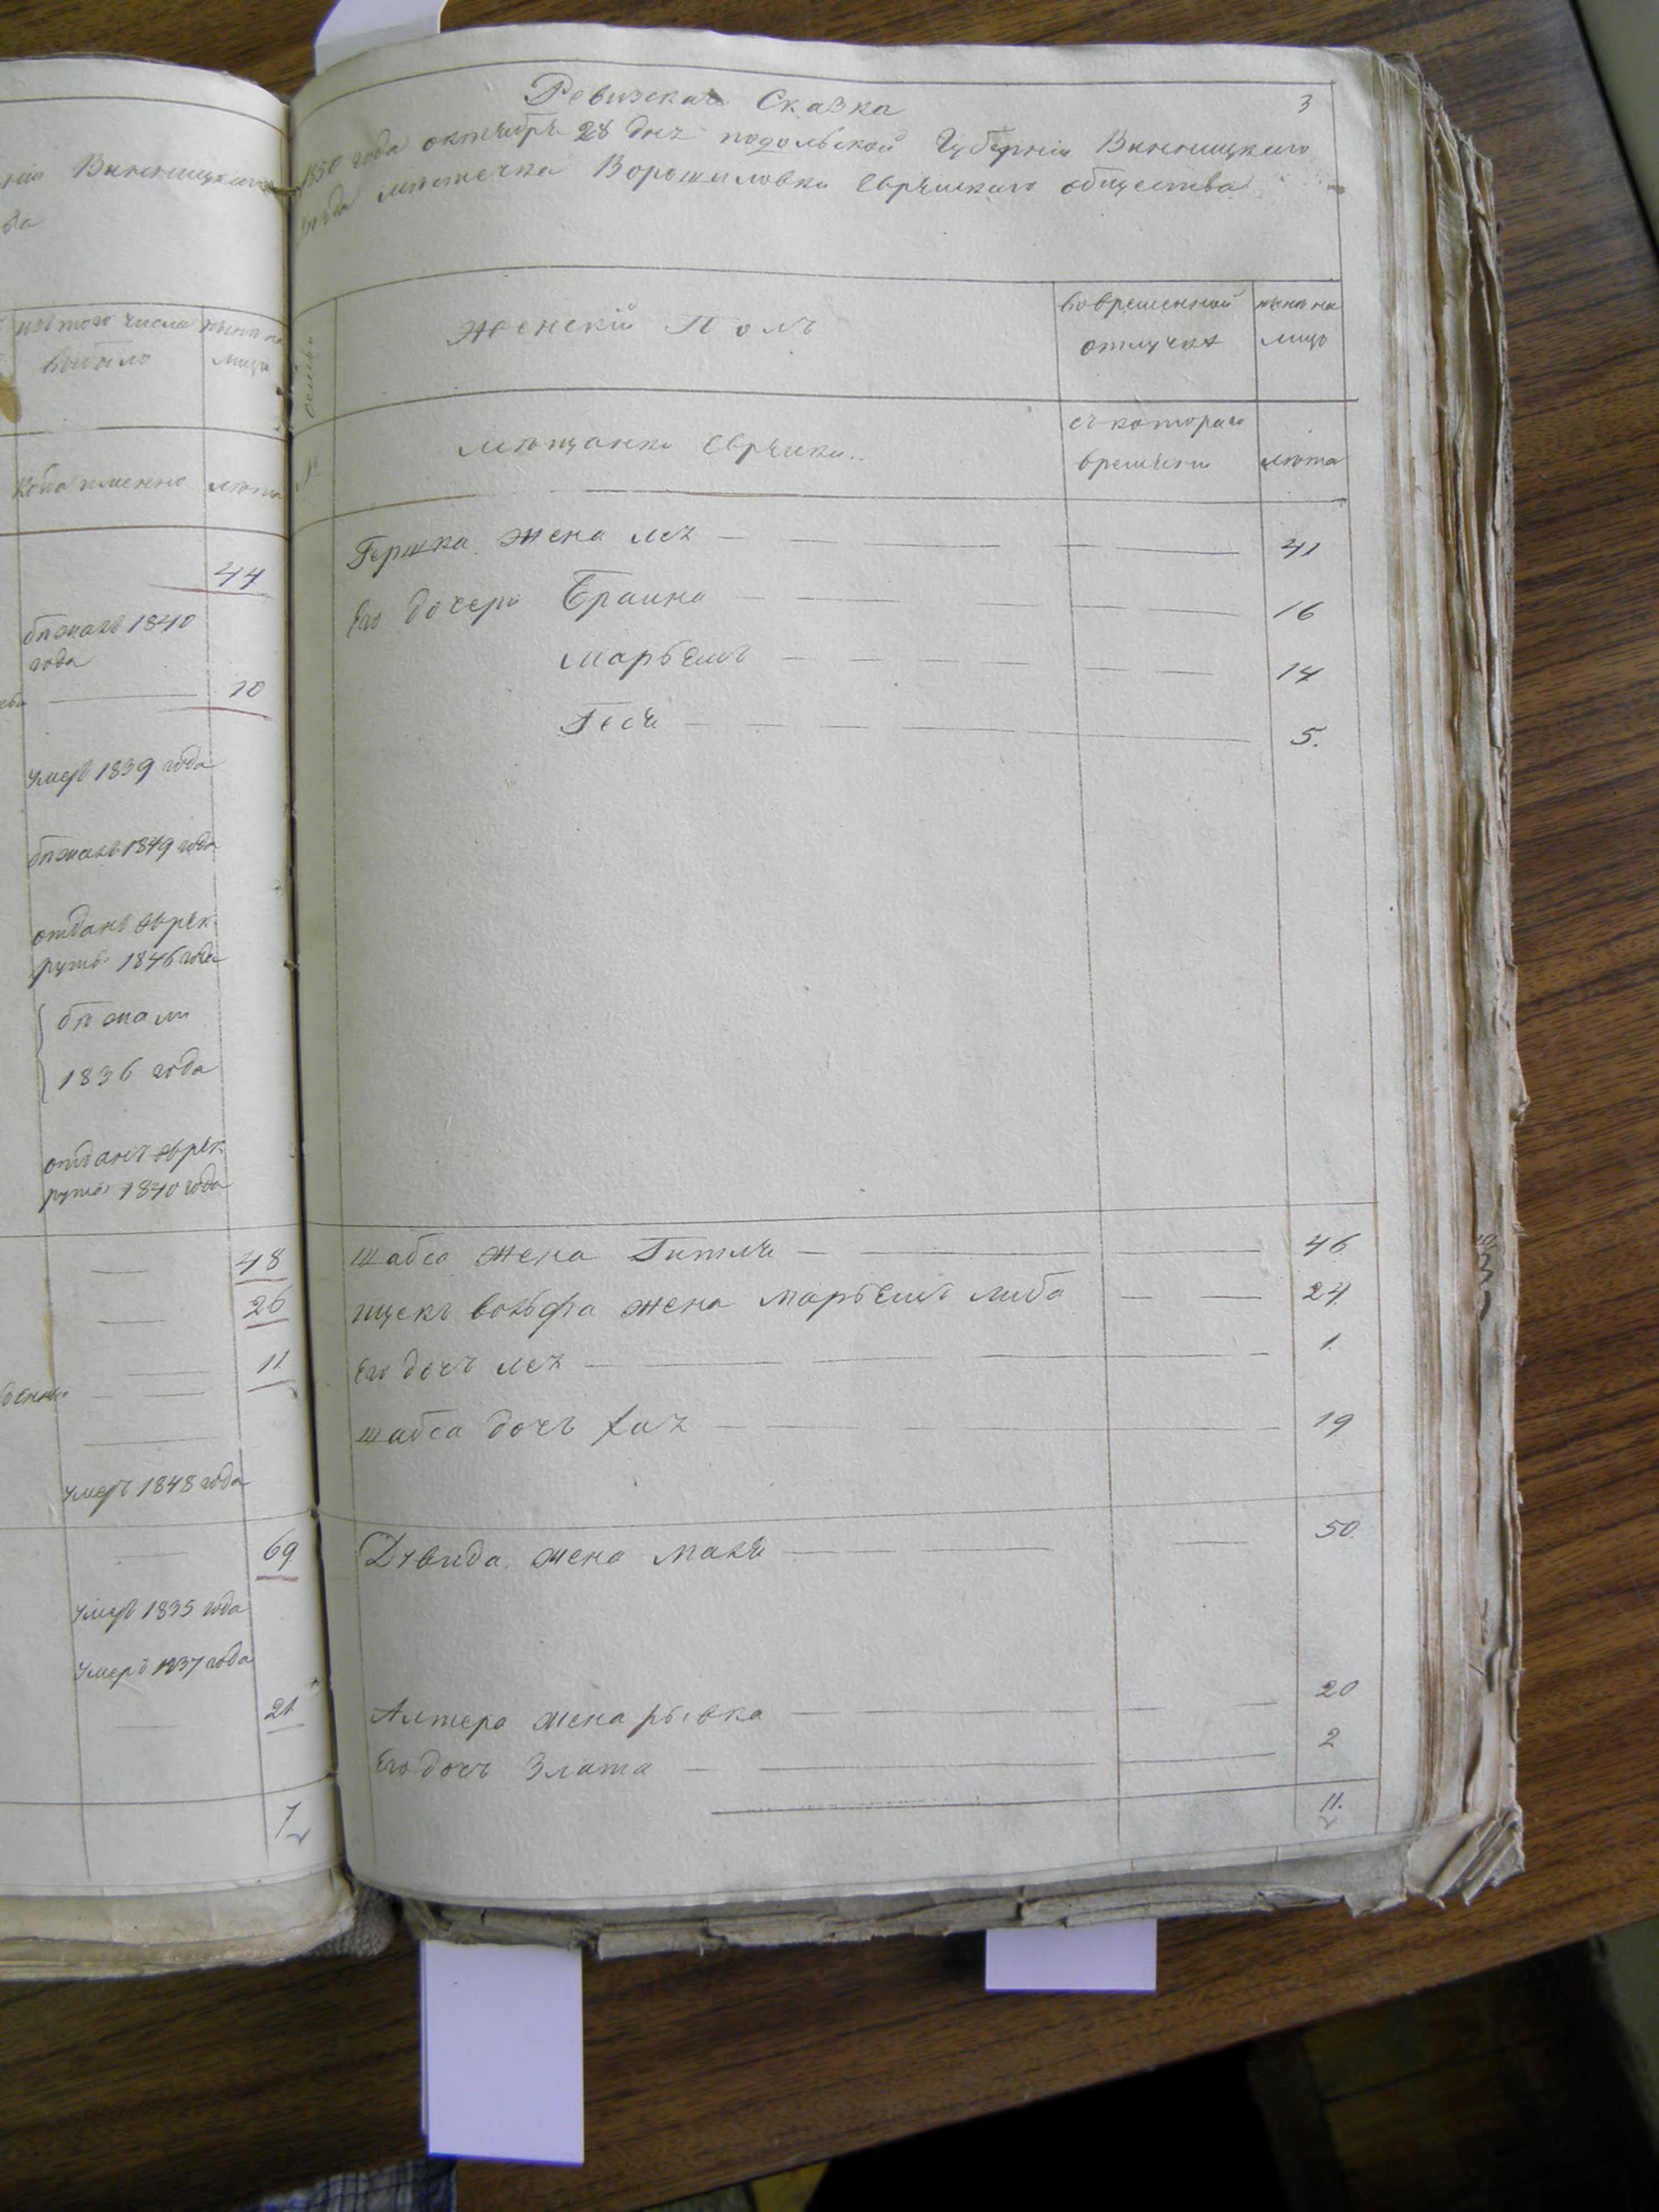 ніи Винницкаго
ва
изъ того числа
выбыло
ныне на
лицо
когда именно
лета
44
бежалъ 1840
года
10
умеръ 1839 года
бежалъ 1849 года
отданъ въ рек
руты 1846 года
бежали
1836 года
отданъ въ рек
руты 1840 года
48
26
11
умеръ 1848 года
69
умеръ 1835 года
умеръ 1837 года
21
7
Ревизская Сказка
3
1850 года октября 28 дня подольской Губерніи Винницкаго
уезда местечка Ворошиловки Еврейскаго общества
семьи
Женскій Полъ
во временной
отлучке
ныне на
лицо
№
мещанки Еврейки
съ котораго
времени
лета
Гершка жена лея 41
Его дочери Браина 16
марьемъ 14
Геся 5.
шабса жена Гитля 46
ицекъ вольфа жена марьемъ либа 24
Его дочъ лея 1.
шабса дочъ хая 19
Давида жена маля 50.
Алтера жена рывка 20
Его дочъ Злата 2
11.